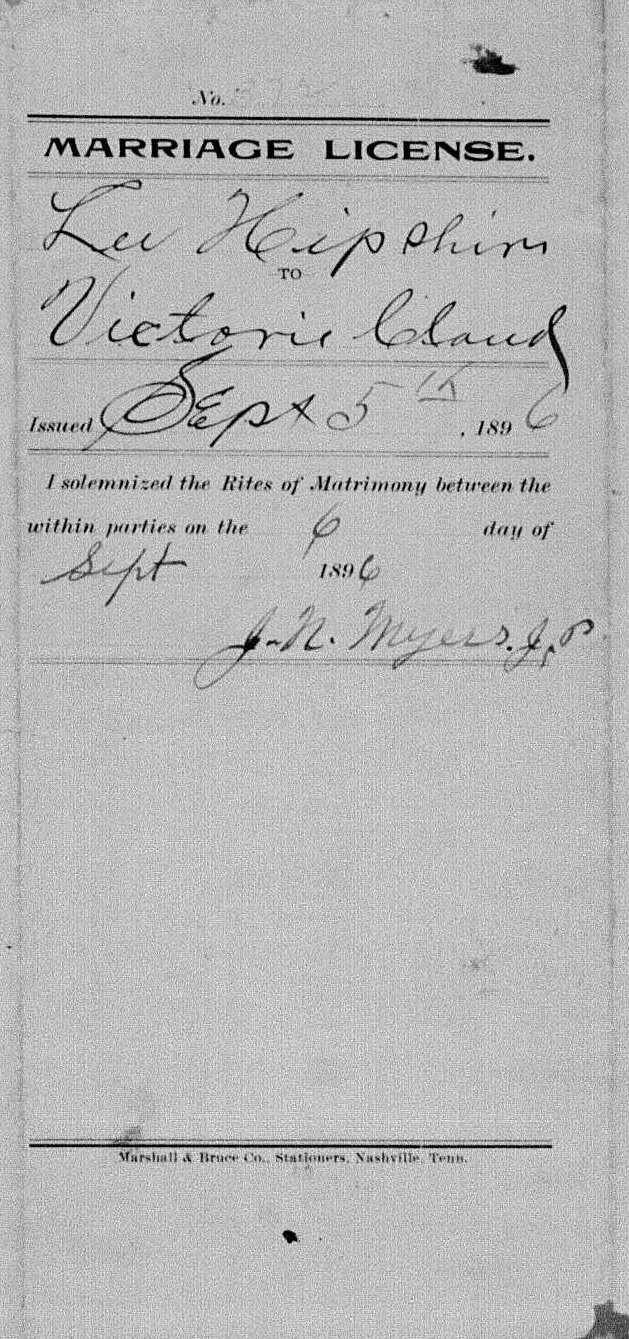 No.
MARRIAGE LICENSE.
Lee Hipshire
TO
Victorie Cloud
Issued Sept 5th, 1896
I solemnized the Rites of Matrimony between the
within parties on the 6 day of
Sept 1896
J. N. Myers. J. P
Marshall & Bruce Co., Stationers, Nashville, Tenn.